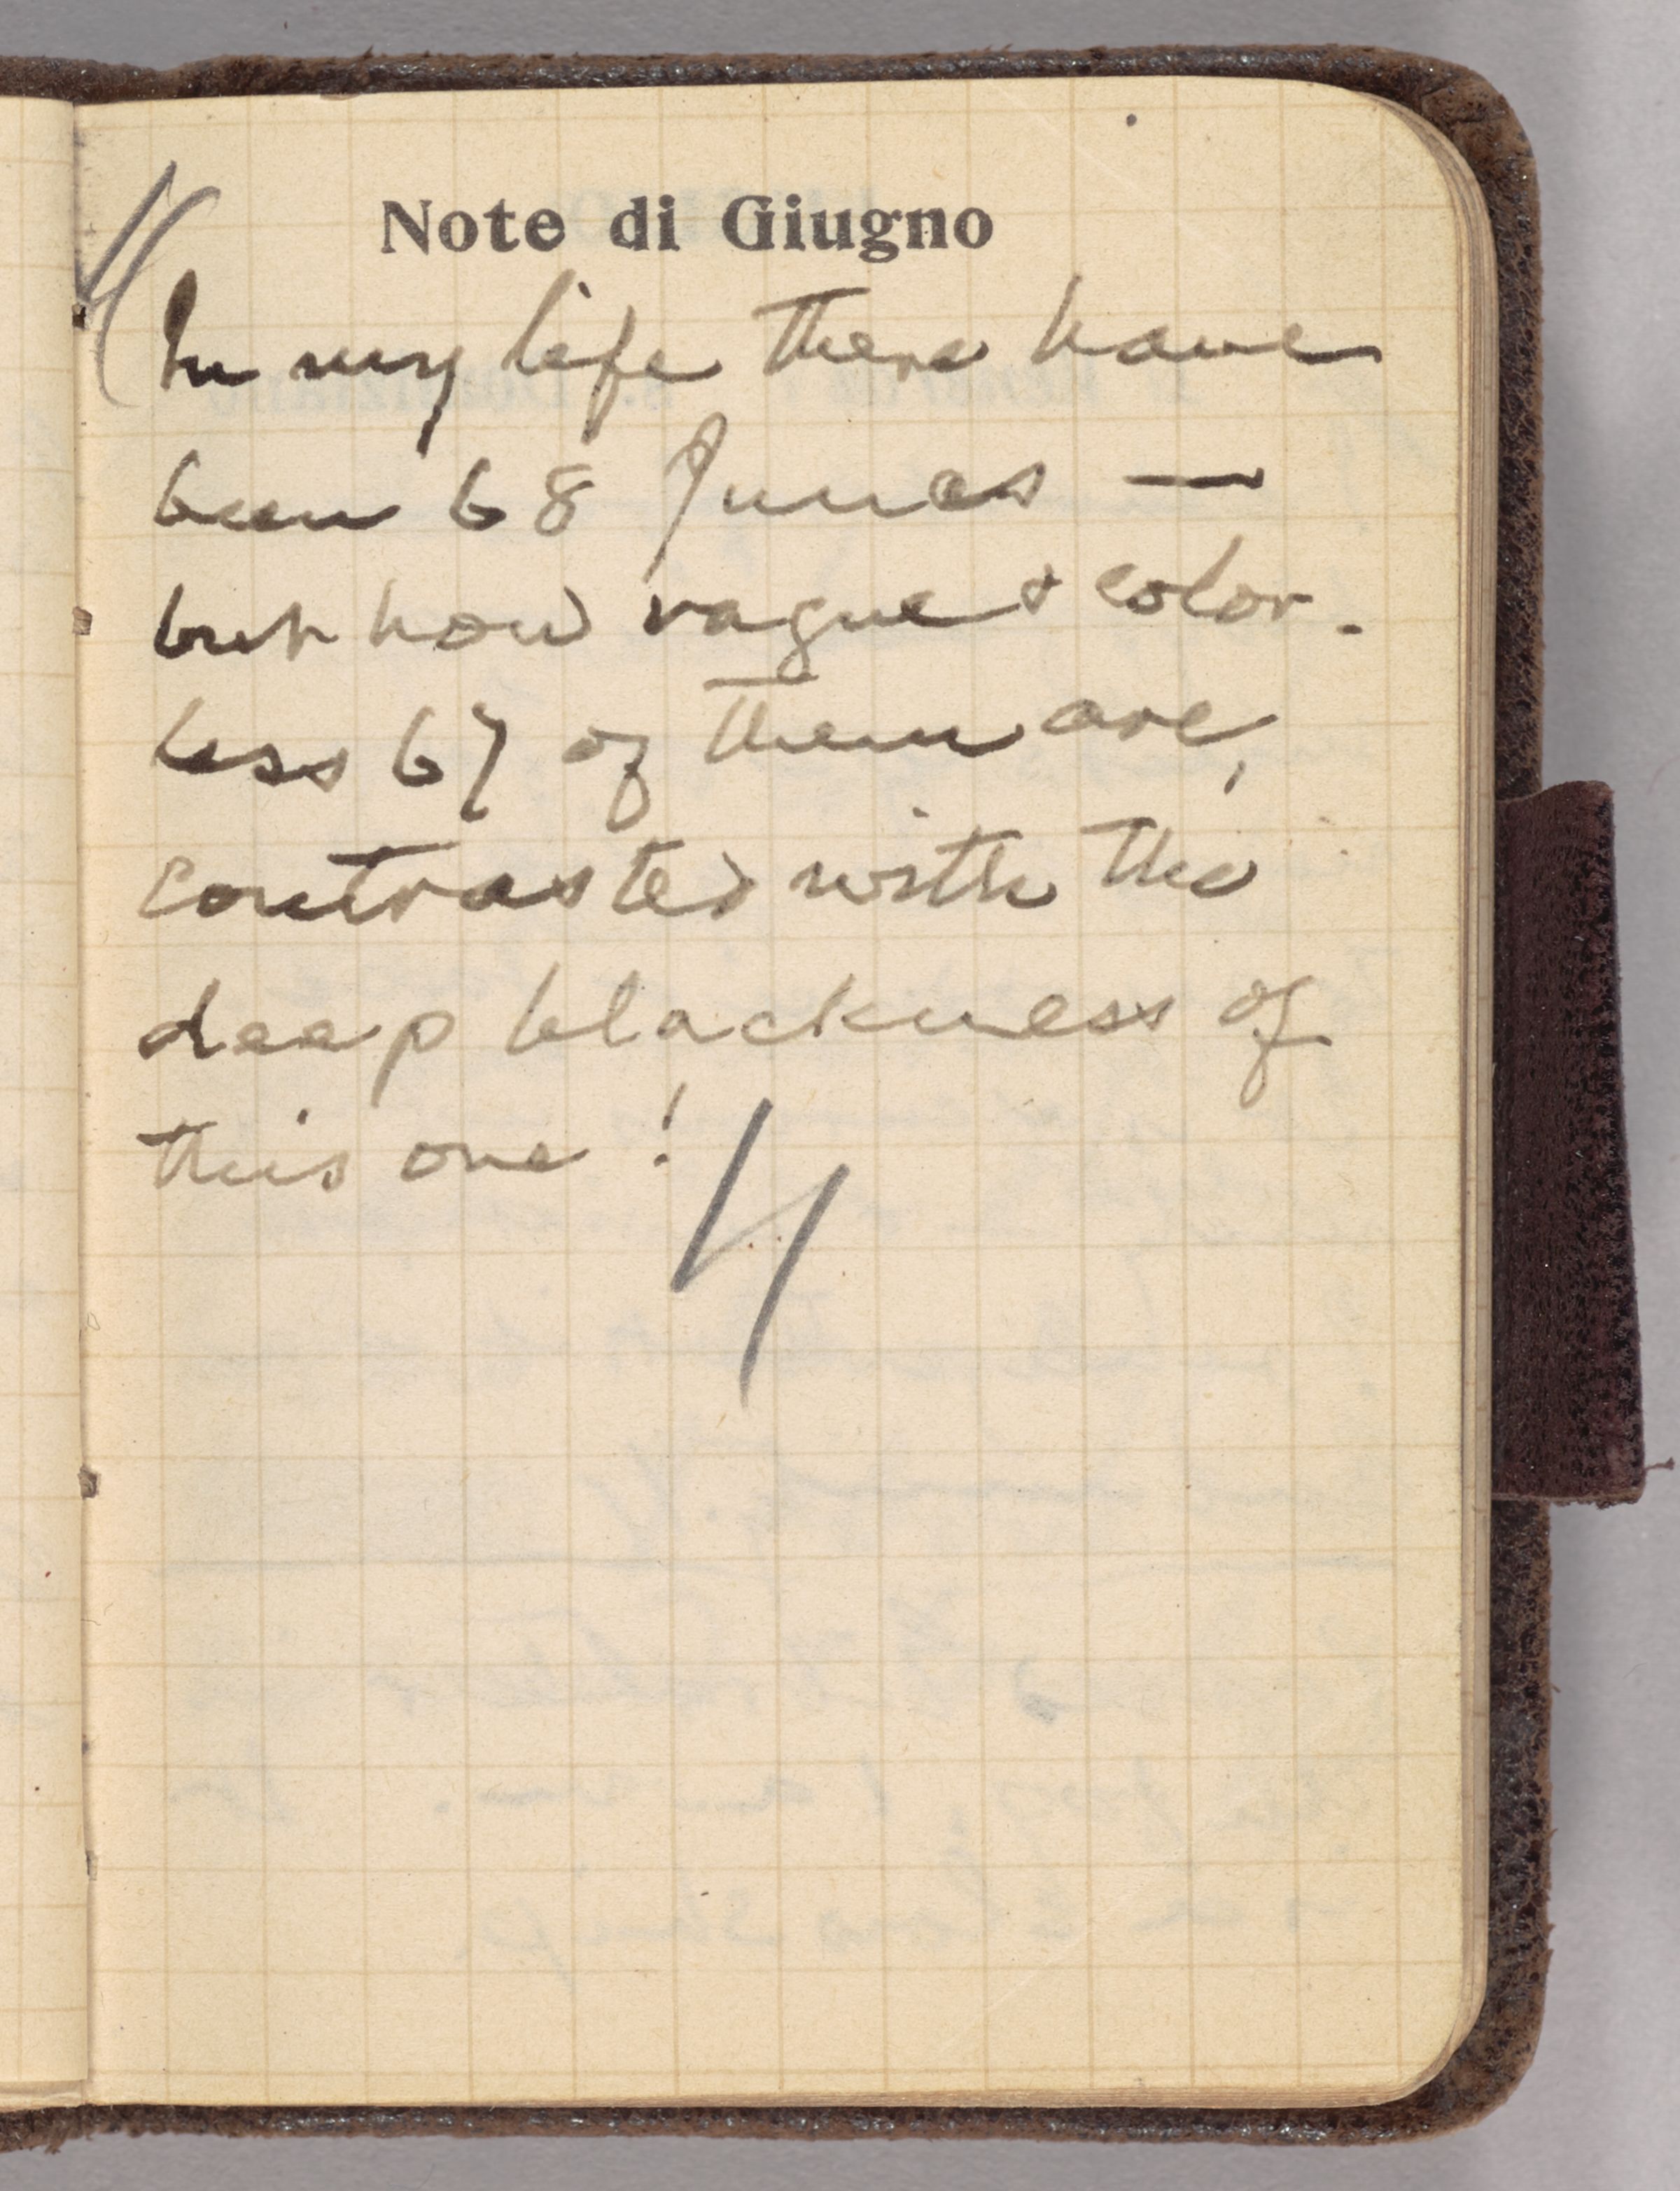 Note di Giugno
In my life there have
been 68 Junes —
but how vague & color-
less 67 of them are,
contrasted with the
deep blackness of
this one!